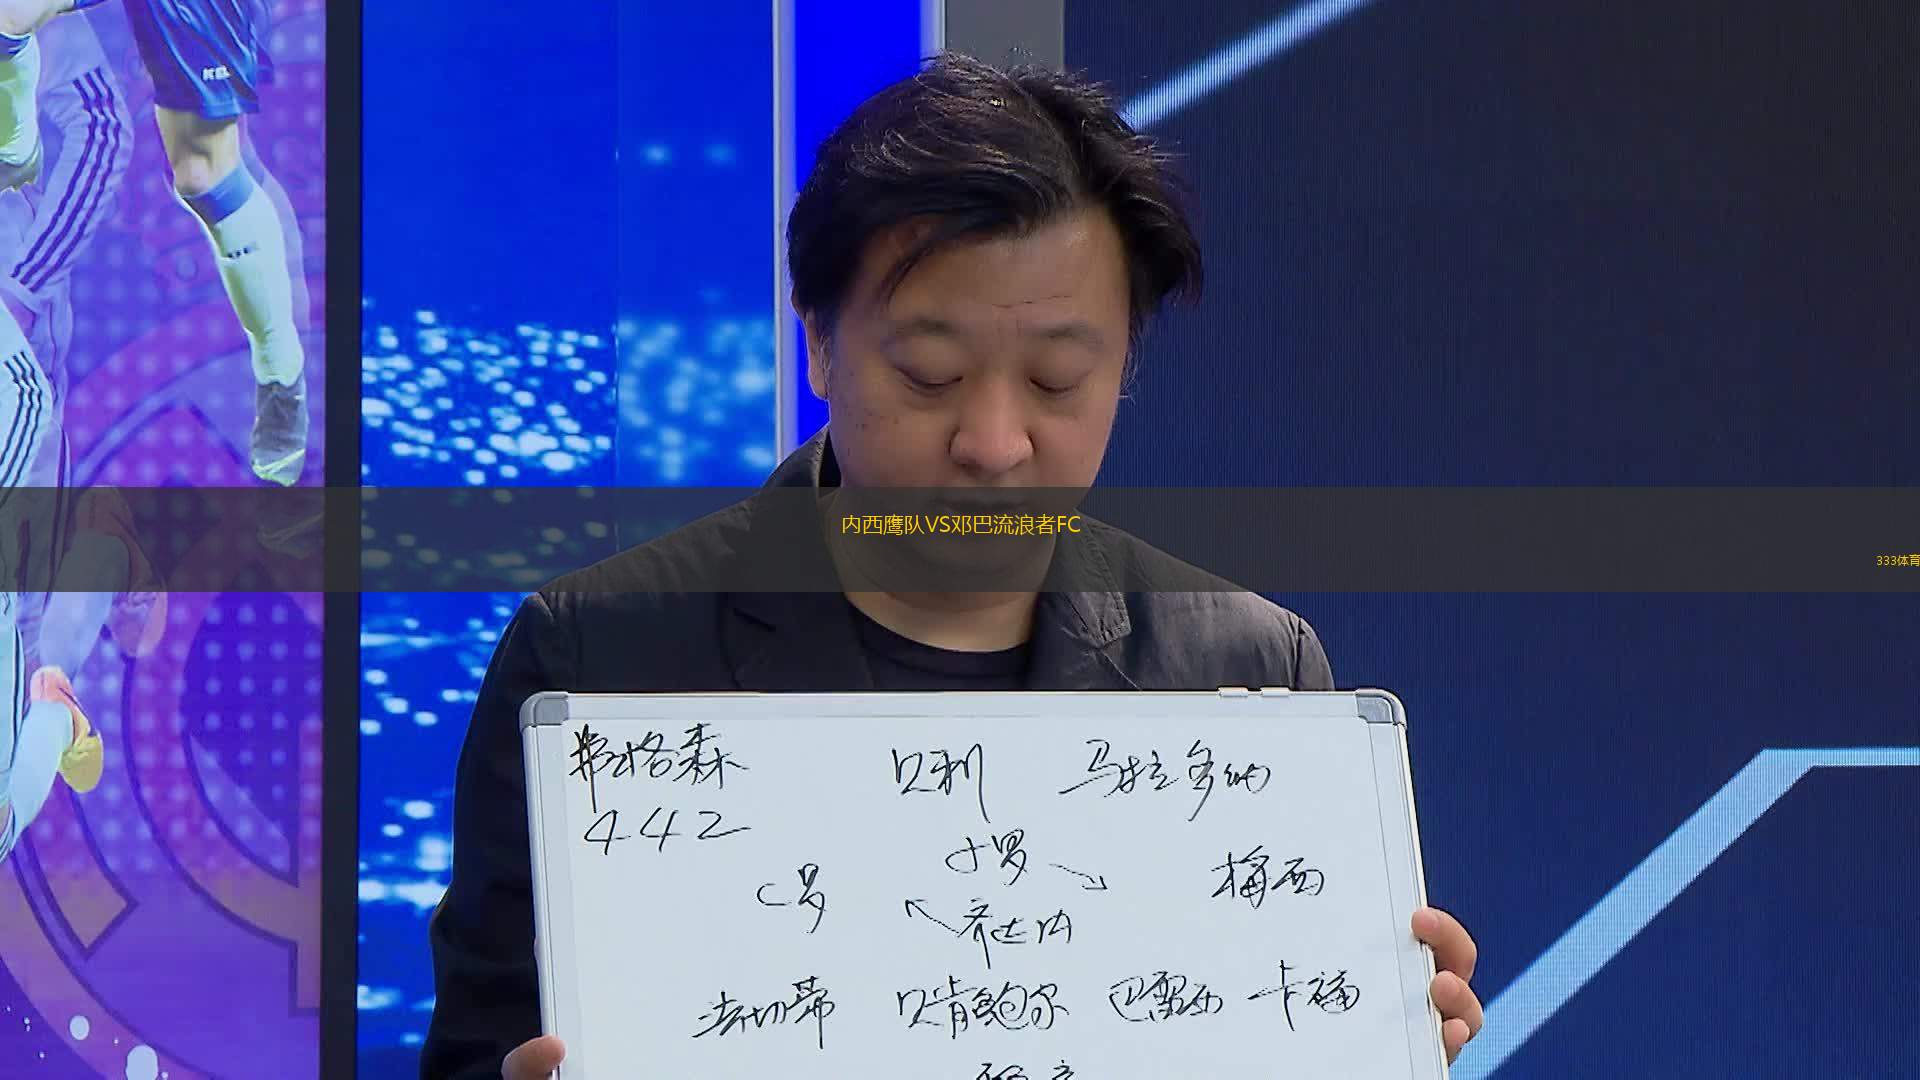 内西鹰队VS邓巴流浪者FC
333体育
弗格森 贝利 马拉多纳
442
小罗
C罗 梅西
齐达内
法切蒂 贝肯鲍尔 巴雷西 卡福